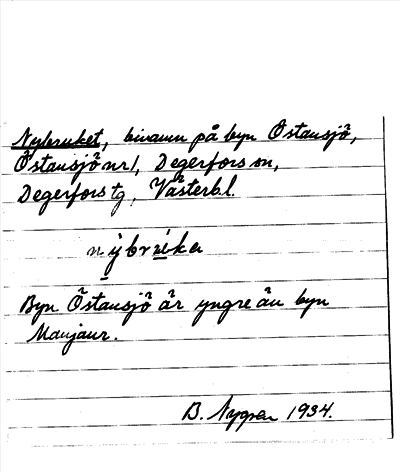 Nybruket, binamn på byn Östansjö,
Östansjö nr 1, Degerfors sn,
Degerfors tg, Västerbl.
Byn Östansjö är yngre än byn
Manjaur.
B. Nygren 1934.